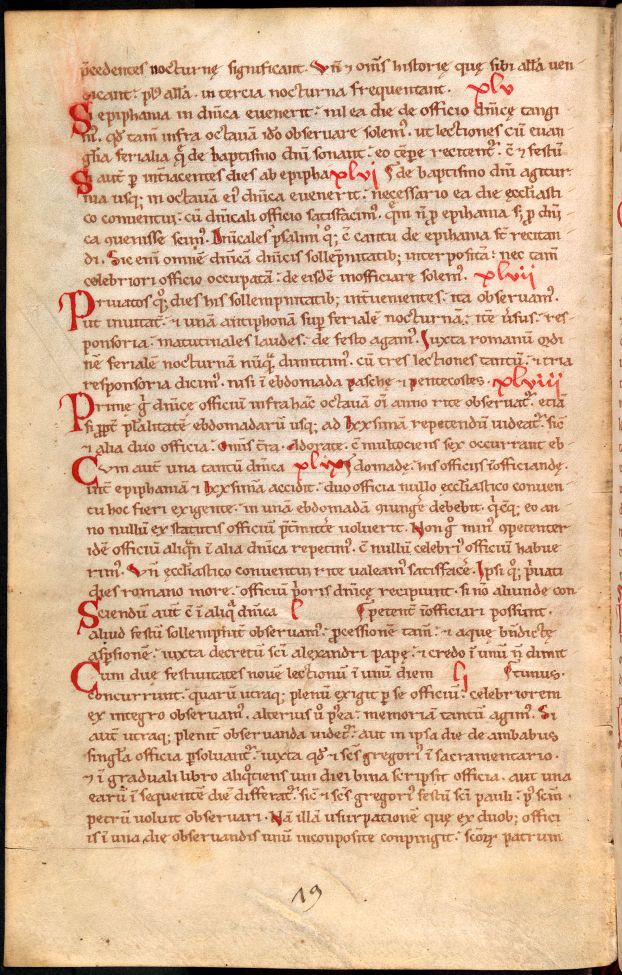 p̄cedentes nocturnę significant. Vn̄ ⁊ om̄s historię quę sibi all̄a ven-
dicant. pꝰ all̄a. in tercia nocturna frequentant. xlv
Si epiphania in dn̄ica evenerit. nil ea die de officio dn̄icę tangi
mꝰ. qd̄ tam̄ infra octauā ido observare solemꝰ. ut lectiones cū euan
gl̄ia ferialia q̄ de baptismo dn̄i sonant. eo tēpe recitentꝰ. c̄ ⁊ festū
Si aut̄ p̄ int̄iacentes dies ab epipha xlvi ſ de baptismo dn̄i agitur.
nia usq; in octauā eiꝰ dn̄ica evenerit. necessario ea die ęccl̄iasti-
co conventui. cū dn̄icali officio satisfacimꝰ. q̄m n̄ p̄ epiphania s; p̄ dn̄i
ca uenisse scimꝰ. Dn̄icales psalmi qꝫ c̄ cantu de epiphania st̄ recitan
di. Sic eni omnē dn̄icā dn̄icis sollēpnitatib; interpositā. nec tam̄
celebriori officio occupatā. de eisdē inofficiare solemꝰ. xlvii
Priuatos qꝫ dies his sollempnitatib; int̄uenientes. ita observamꝰ.
ut inuitat̄. ⁊ unā antiphonā sup̄ feriale nocturnā. itē v̄sus. res-
ponsoria. matutinales laudes. de festo agamꝰ. Iuxta romanū ordi
nē ferialē nocturnā nūq̄ dimittimꝰ. cū tres lectiones tantū. ⁊ tria
responsoria dicimꝰ. nisi ī ebdomada paschę ⁊ pentecostes. xlviii
Prime ḡ dn̄icę officiū infra hāc octauā om̄i anno rite observatꝰ. etiā
si p̄pt̄ pl̄alitatē ebdomadarū usq; ad lxxsimā repetendū uideatꝰ. sic̄
⁊ alia duo officia. Om̄is t̄ra. Adorate. c̄ multociens sex occurrant eb-
Cum aut̄ una tantū dn̄ica xlix ſ domadę. his officiis īofficiandę.
int̄ epiphaniā ⁊ lxxsimā accidit. duo officia nullo ęccl̄iastico conuen
tu hoc fieri exigente. in unā ebdomadā giungere debebit. q̄cq; eo an-
no nullū ex statutis officiū p̄mittere voluerit. Non gͦ minꝰ cpetenter
idē officiū aliqn̄ ī alia dn̄ica repetimꝰ. c̄ nullū celebriꝰ officiū habue
rimꝰ. Vn̄ ęccl̄iastico conventui rite valeamꝰ satisfacē. Ipsi qꝫ p̄uati
dies romano more. officiū p̄oris dn̄icę recipiunt. si nō aliunde con
Sciendū aut̄ c̄ ī aliq̄ dn̄ica l ſ petent̄ īofficiari possunt.
aliud festū sollempnit̄ observamꝰ. p̄cessionē tam̄. ⁊ aquę bn̄dictę
asp̄sionē. iuxta decretū sc̄i alexandri papę. ⁊ credo ī unū n̄ dimit
Cum duę festiuitates nouē lectionū ī unū diem li ſ timus.
concurrunt. quarū utraq; plenū exigit p̄ se officiū. celebriorem
ex integro observamꝰ. alteriusꝰ ū p̄ea. memoriā tantū agimꝰ. Si
aut̄ utraq; plenit̄ observanda videtꝰ. aut in ipsa die de ambabus
singl̄a officia p̄soluantꝰ. iuxta qd̄ ⁊ sc̄s gregoriꝰ ī sacramentario.
⁊ ī graduali libro aliq̄tiens uni diei bina scripsit officia. aut una
earū ī sequentē diē differatꝰ. sic̄ ⁊ sc̄s gregoriꝰ festū sc̄i pauli. pꝰ sc̄m
petrū voluit observari. Nā illā usurpationē quę ex duob; offici
is ī una die observandis unū inconposite conpingit. sc̄oꝝ patrum
19